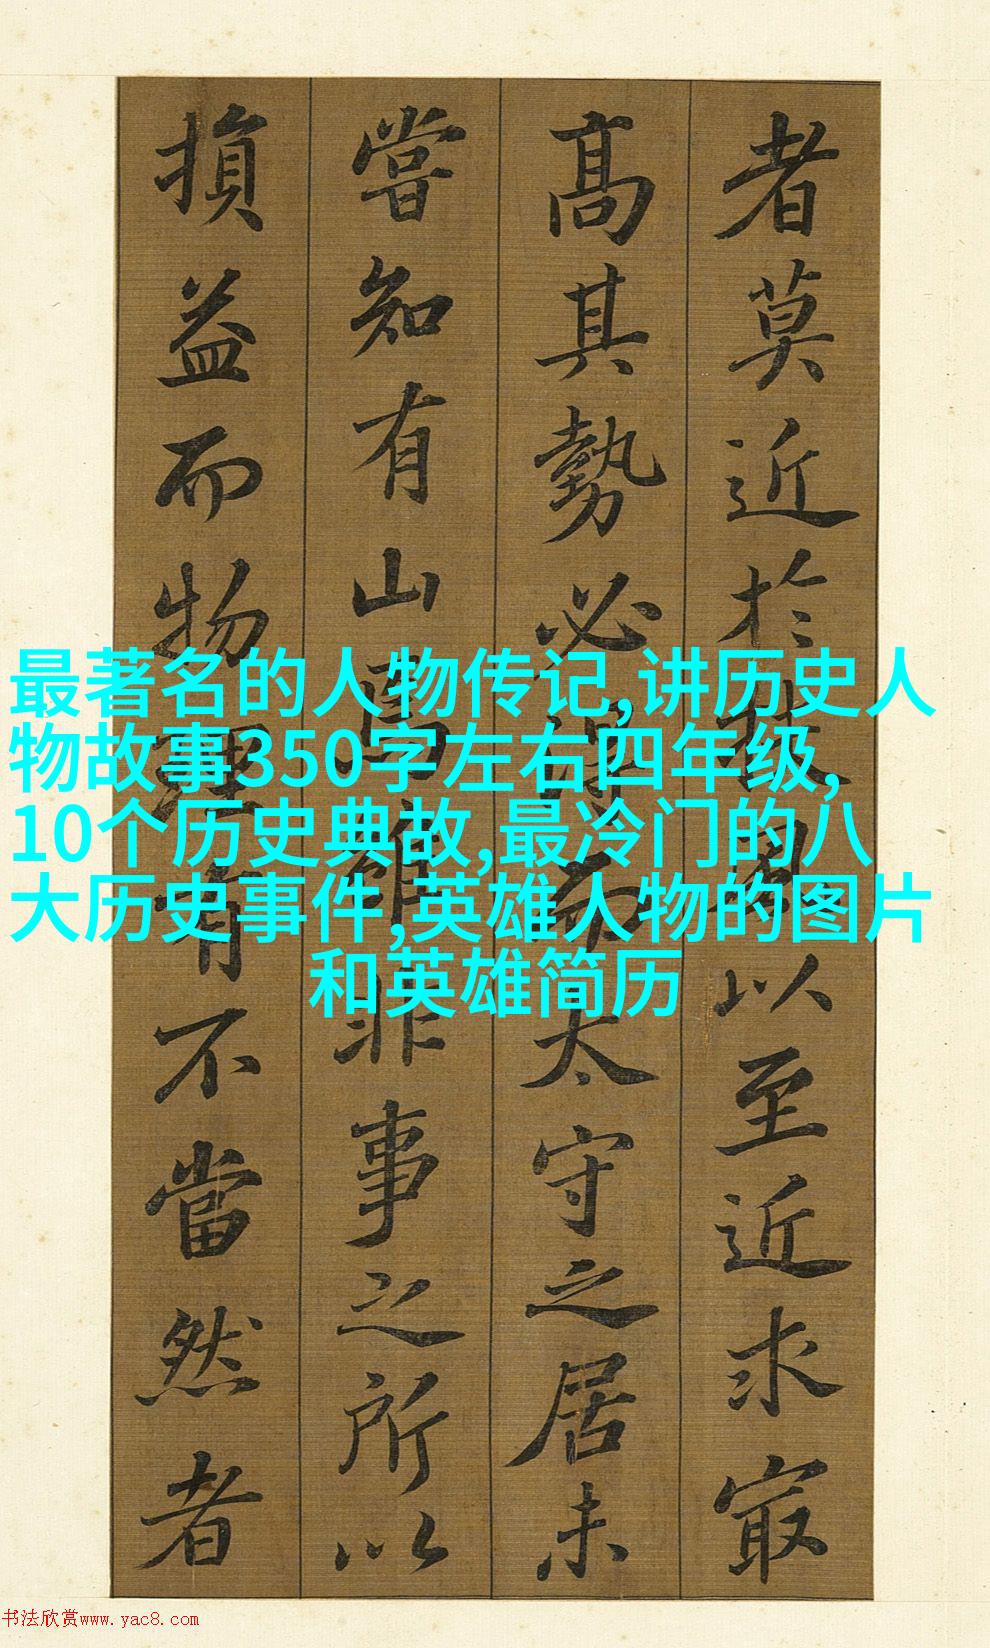 者莫近於扶風以至近求冣
高其勢必得而太守之居未
嘗知有山焉雖非事之所以
損益而物理有不當然者
最著名的人物传记,讲历史人
物故事350字左右四年级,
10个历史典故,最冷门的八
大历史事件,英雄人物的图片
和英雄简历
书法欣赏www.yac8.com